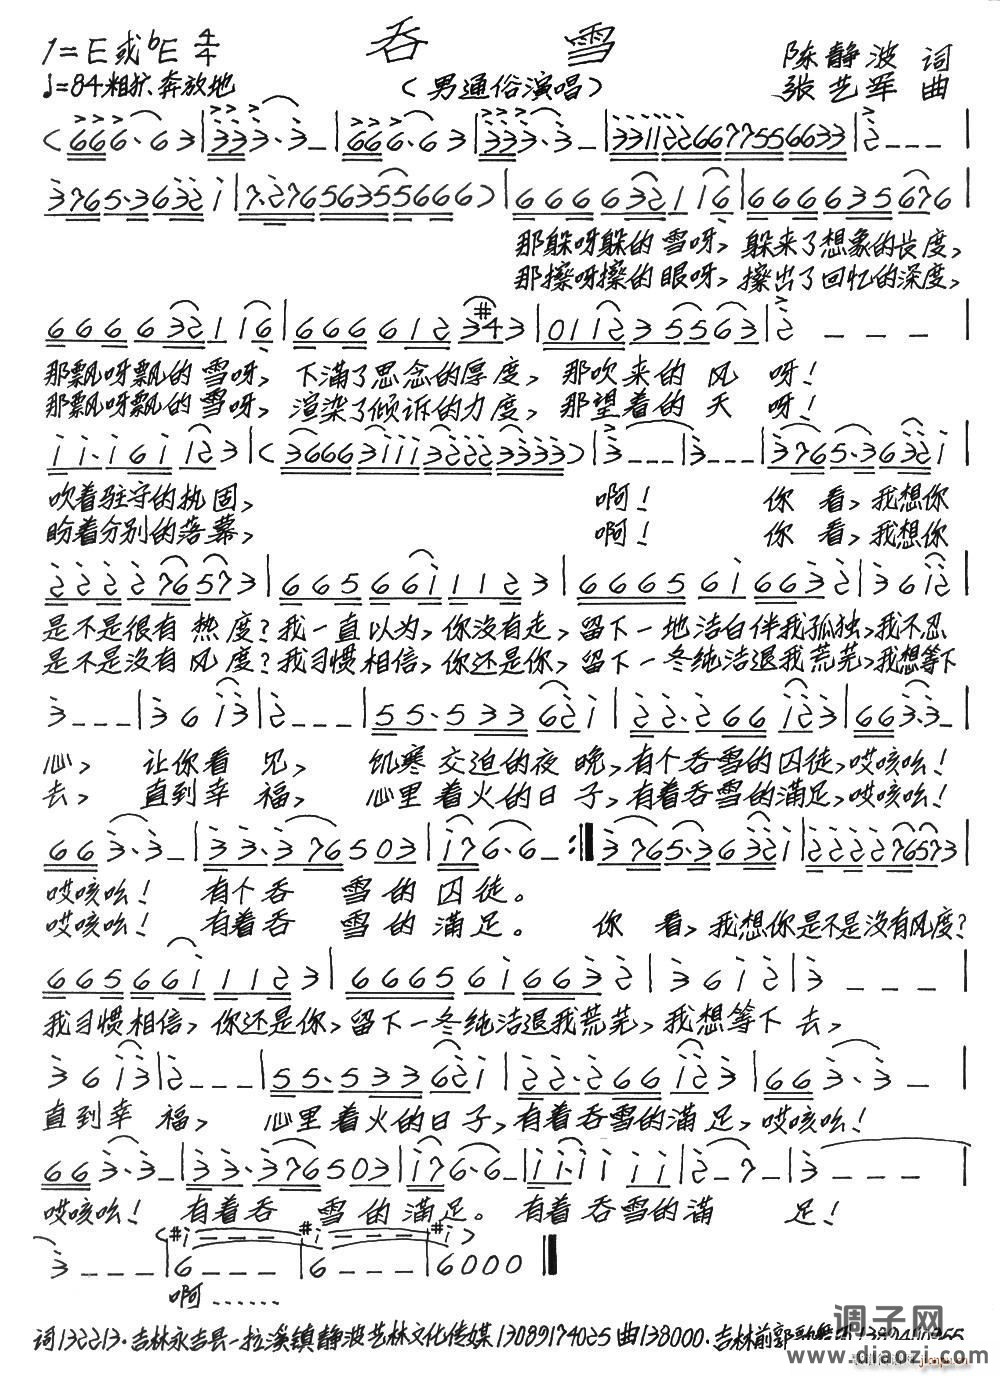 吞 雪
1=E或bE 4/4
♩=84粗犷、奔放地
(男通俗演唱)
陈静波 词
张艺军 曲
那躲呀躲的雪呀、躲来了想象的长度、
那擦呀擦的眼呀、擦出了回忆的深度、
那飘呀飘的雪呀、下满了思念的厚度、那吹来的风呀!
那飘呀飘的雪呀、渲染了倾诉的力度、那望着的天呀!
吹着驻守的执固、啊! 你看、我想你
盼着分别的落幕、啊! 你看、我想你
是不是很有热度?我一直以为、你没有走、留下一地洁白伴我孤独、我不忍
是不是没有风度?我习惯相信、你还是你、留下一冬纯洁退我荒芜、我想等下
心、让你看见、饥寒交迫的夜晚、有个吞雪的囚徒、哎咳吆!
去、直到幸福、心里着火的日子、有着吞雪的满足、哎咳吆!
哎咳吆! 有个吞雪的囚徒。
哎咳吆! 有着吞雪的满足。你看、我想你是不是没有风度?
我习惯相信、你还是你、留下一冬纯洁退我荒芜、我想等下去、
直到幸福、心里着火的日子、有着吞雪的满足、哎咳吆!
哎咳吆! 有着吞雪的满足。有着吞雪的满足!
啊……
词132213·吉林永吉县一拉溪镇静波艺林文化传媒13089174025曲138000·吉林前郭
调子网
www.diaozi.com